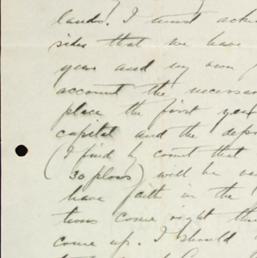 lands. I must ackn
sides that we have
years and my own
account the necessar
place the first year
capital and the dep
(I find by count that
30 plows) will be
have faith in the
tions come right th
come up. I should